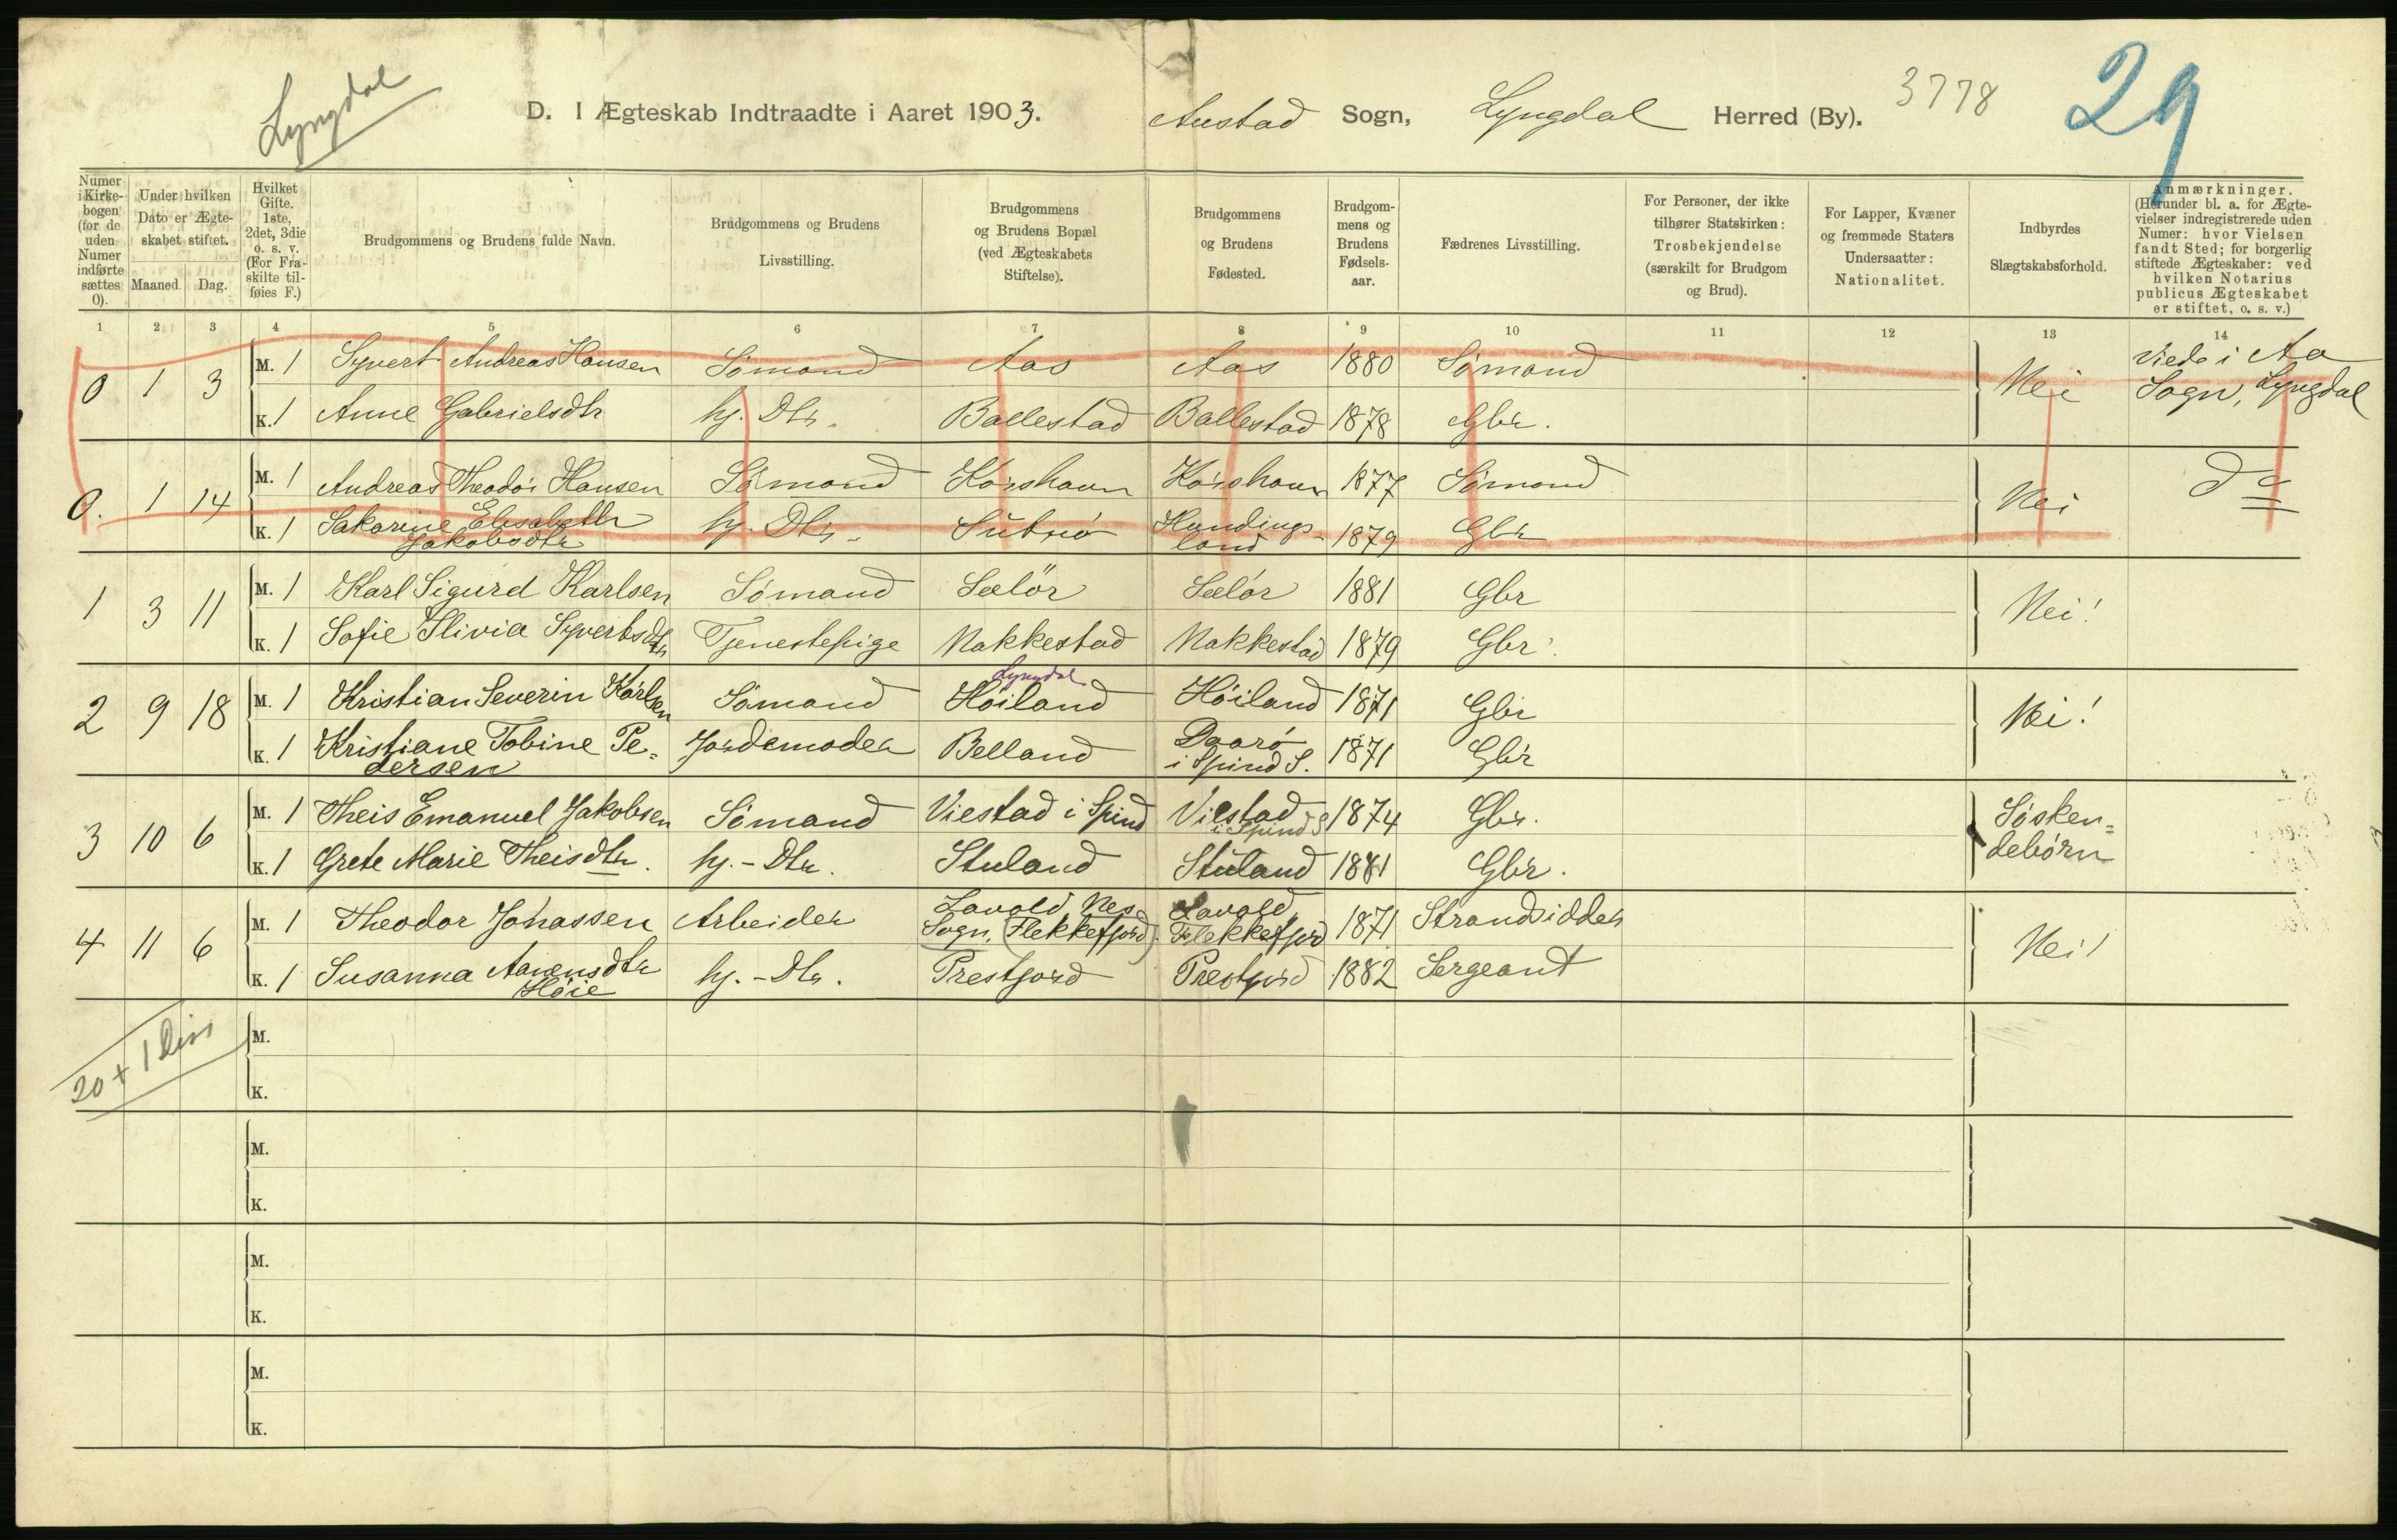 Lyngdal
D. I Ægteskab Indtraadte i Aaret 1903. Austad Sogn, Lyngdal Herred (By). 3778 29
Numer i Kirke-bogen (for de uden Numer indførte sættes 0).
Under hvilken Dato er Ægte-skabet stiftet.
Maaned. Dag.
Hvilket Gifte. 1ste, 2det, 3die o. s. v. (For Fra-skilte til-føies F.)
Brudgommens og Brudens fulde Navn.
Brudgommens og Brudens Livsstilling.
Brudgommens og Brudens Bopæl (ved Ægteskabets Stiftelse).
Brudgommens og Brudens Fødested.
Brudgom-mens og Brudens Fødsels-aar.
Fædrenes Livsstilling.
For Personer, der ikke tilhører Statskirken: Trosbekjendelse (særskilt for Brudgom og Brud).
For Lapper, Kvæner og fremmede Staters Undersaatter: Nationalitet.
Indbyrdes Slægtskabsforhold.
Anmærkninger. (Herunder bl. a. for Ægte-vielser indregistrerede uden Numer: hvor Vielsen fandt Sted; for borgerlig stiftede Ægteskaber: ved hvilken Notarius publicus Ægteskabet er stiftet, o. s. v.)
1 2 3 4 5 6 7 8 9 10 11 12 13 14
0 1 3 M. 1 Syvert Andreas Hansen Sømand Aas Aas 1880 Sømand Nei Viede i Aa Sogn, Lyngdal
K. 1 Anne Gabrielsdtr hj. Dtr. Ballestad Ballestad 1878 Gbr.
0. 1 14 M. 1 Andreas Theodor Hansen Sømand Korshavn Korshavn 1877 Sømand Nei do
K. 1 Sakarine Elisabeth Jakobsdtr hj. Dtr. Hundings-land 1879 Gbr
1 3 11 M. 1 Karl Sigurd Karlsen Sømand Sælör Sælör 1881 Gbr Nei!
K. 1 Sofie Slivia Syvertsdtr Tjenestepige Nakkestad Nakkestad 1879 Gbr.
2 9 18 M. 1 Kristian Severin Karlsen Sømand Lyngdal Høiland Høiland 1871 Gbr Nei!
K. 1 Kristiane Tobine Pe=dersen Jordemoder Belland Daarø i Spind S. 1871 Gbr
3 10 6 M. 1 Theis Emanuel Jakobsen Sømand Viestad i Spind Viestad i Spind S 1874 Gbr. Søsken=debørn
K. 1 Grete Marie Theisdtr. hj. - Dtr. Stuland Stuland 1881 Gbr.
4 11 6 M. 1 Theodor Jonassen Arbeider Lavold Nes Sogn. (Flekkefjord). Lavold, Flekkefjord 1871 Strandsidder Nei!
K. 1 Susanna Aanensdtr Høie hj. - Dtr. Prestjord Prestjord 1882 Sergeant
20 + 1
M.
K.
M.
K.
M.
K.
M.
K.